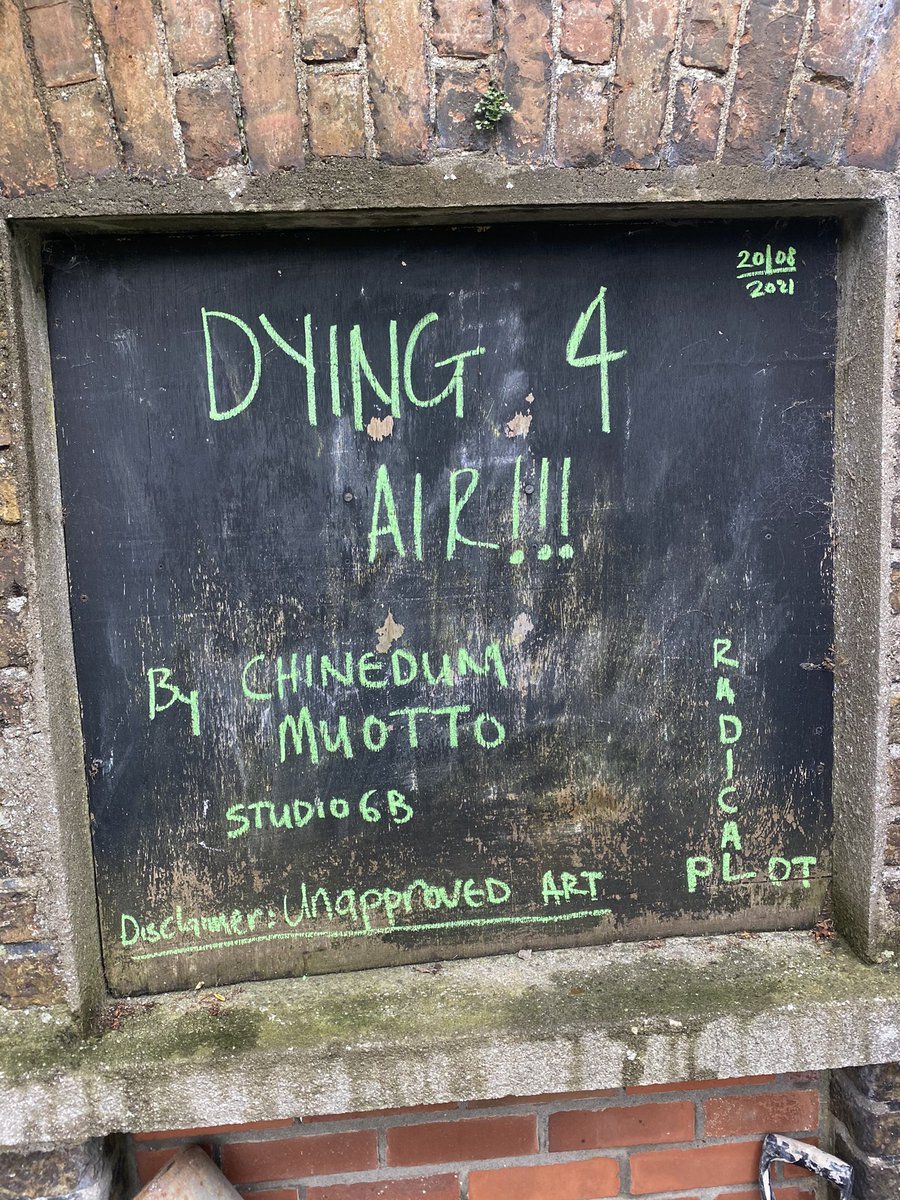 20/08
2021
DYING 4
AIR!!!
By CHINEDUM
MUOTTO
STUDIO 6B
RADICAL
PLOT
Disclaimer: Unapproved ART